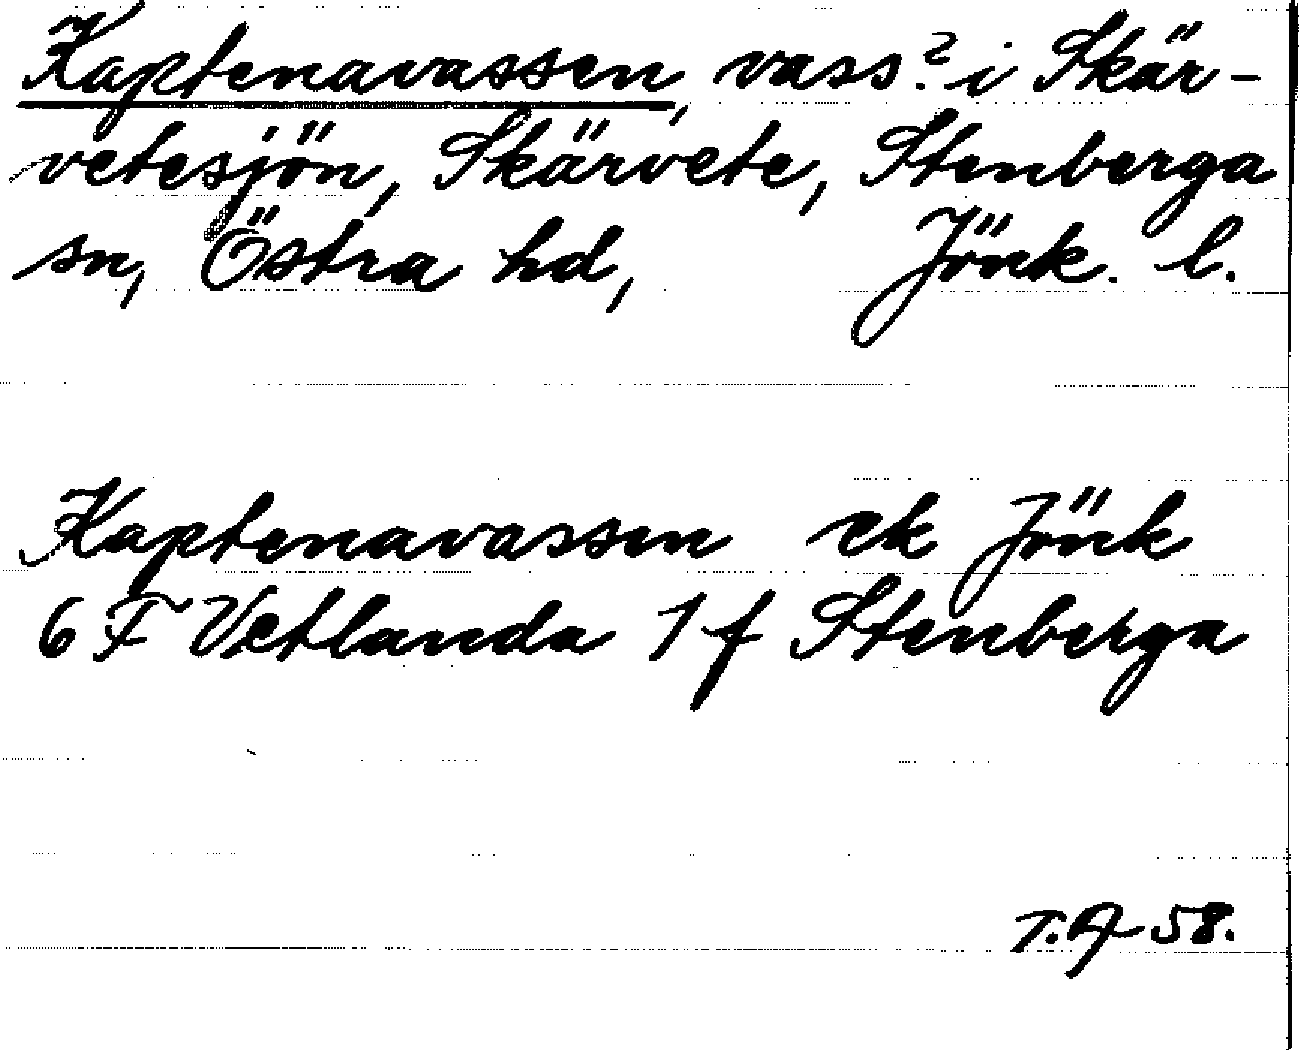 Kaptenavassen, vass? i Skär-
vetesjön, Skärvete, Stenberga
sn, Östra hd, Jönk. l.
Kaptenavassen ek Jönk
6 F Vetlanda 1 f Stenberga
58.